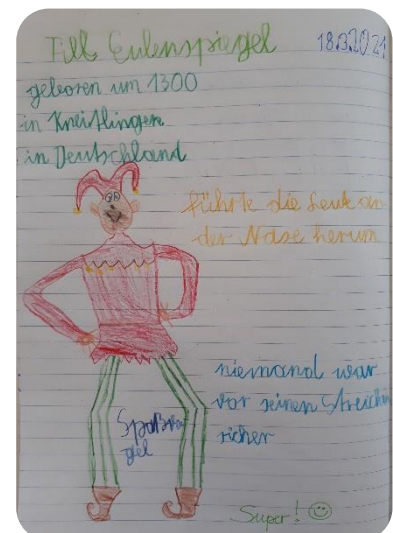 Till Eulenspiegel
18.3.2021
geboren um 1300
in Kneitlingen
in Deutschland
führte die Leute an
der Nase herum
niemand war
vor seinen Streichen
sicher
Spaßvo
gel
Super!